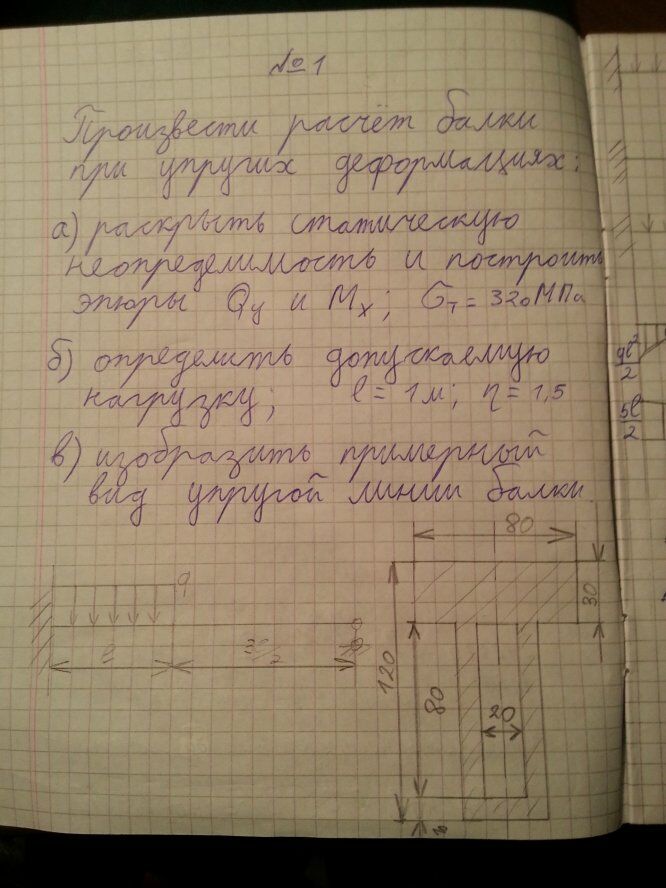 № 1
Произвести расчёт балки
при упругих деформациях:
а) раскрыть статическую
неопределимость и построить
эпюры Qy и Mx; σт = 320 МПа
б) определить допускаемую
нагрузку; l = 1 м; η = 1,5
в) изобразить примерный
вид упругой линии балки.
q
l
80
30
120
80
20
ql²
2
5l
2